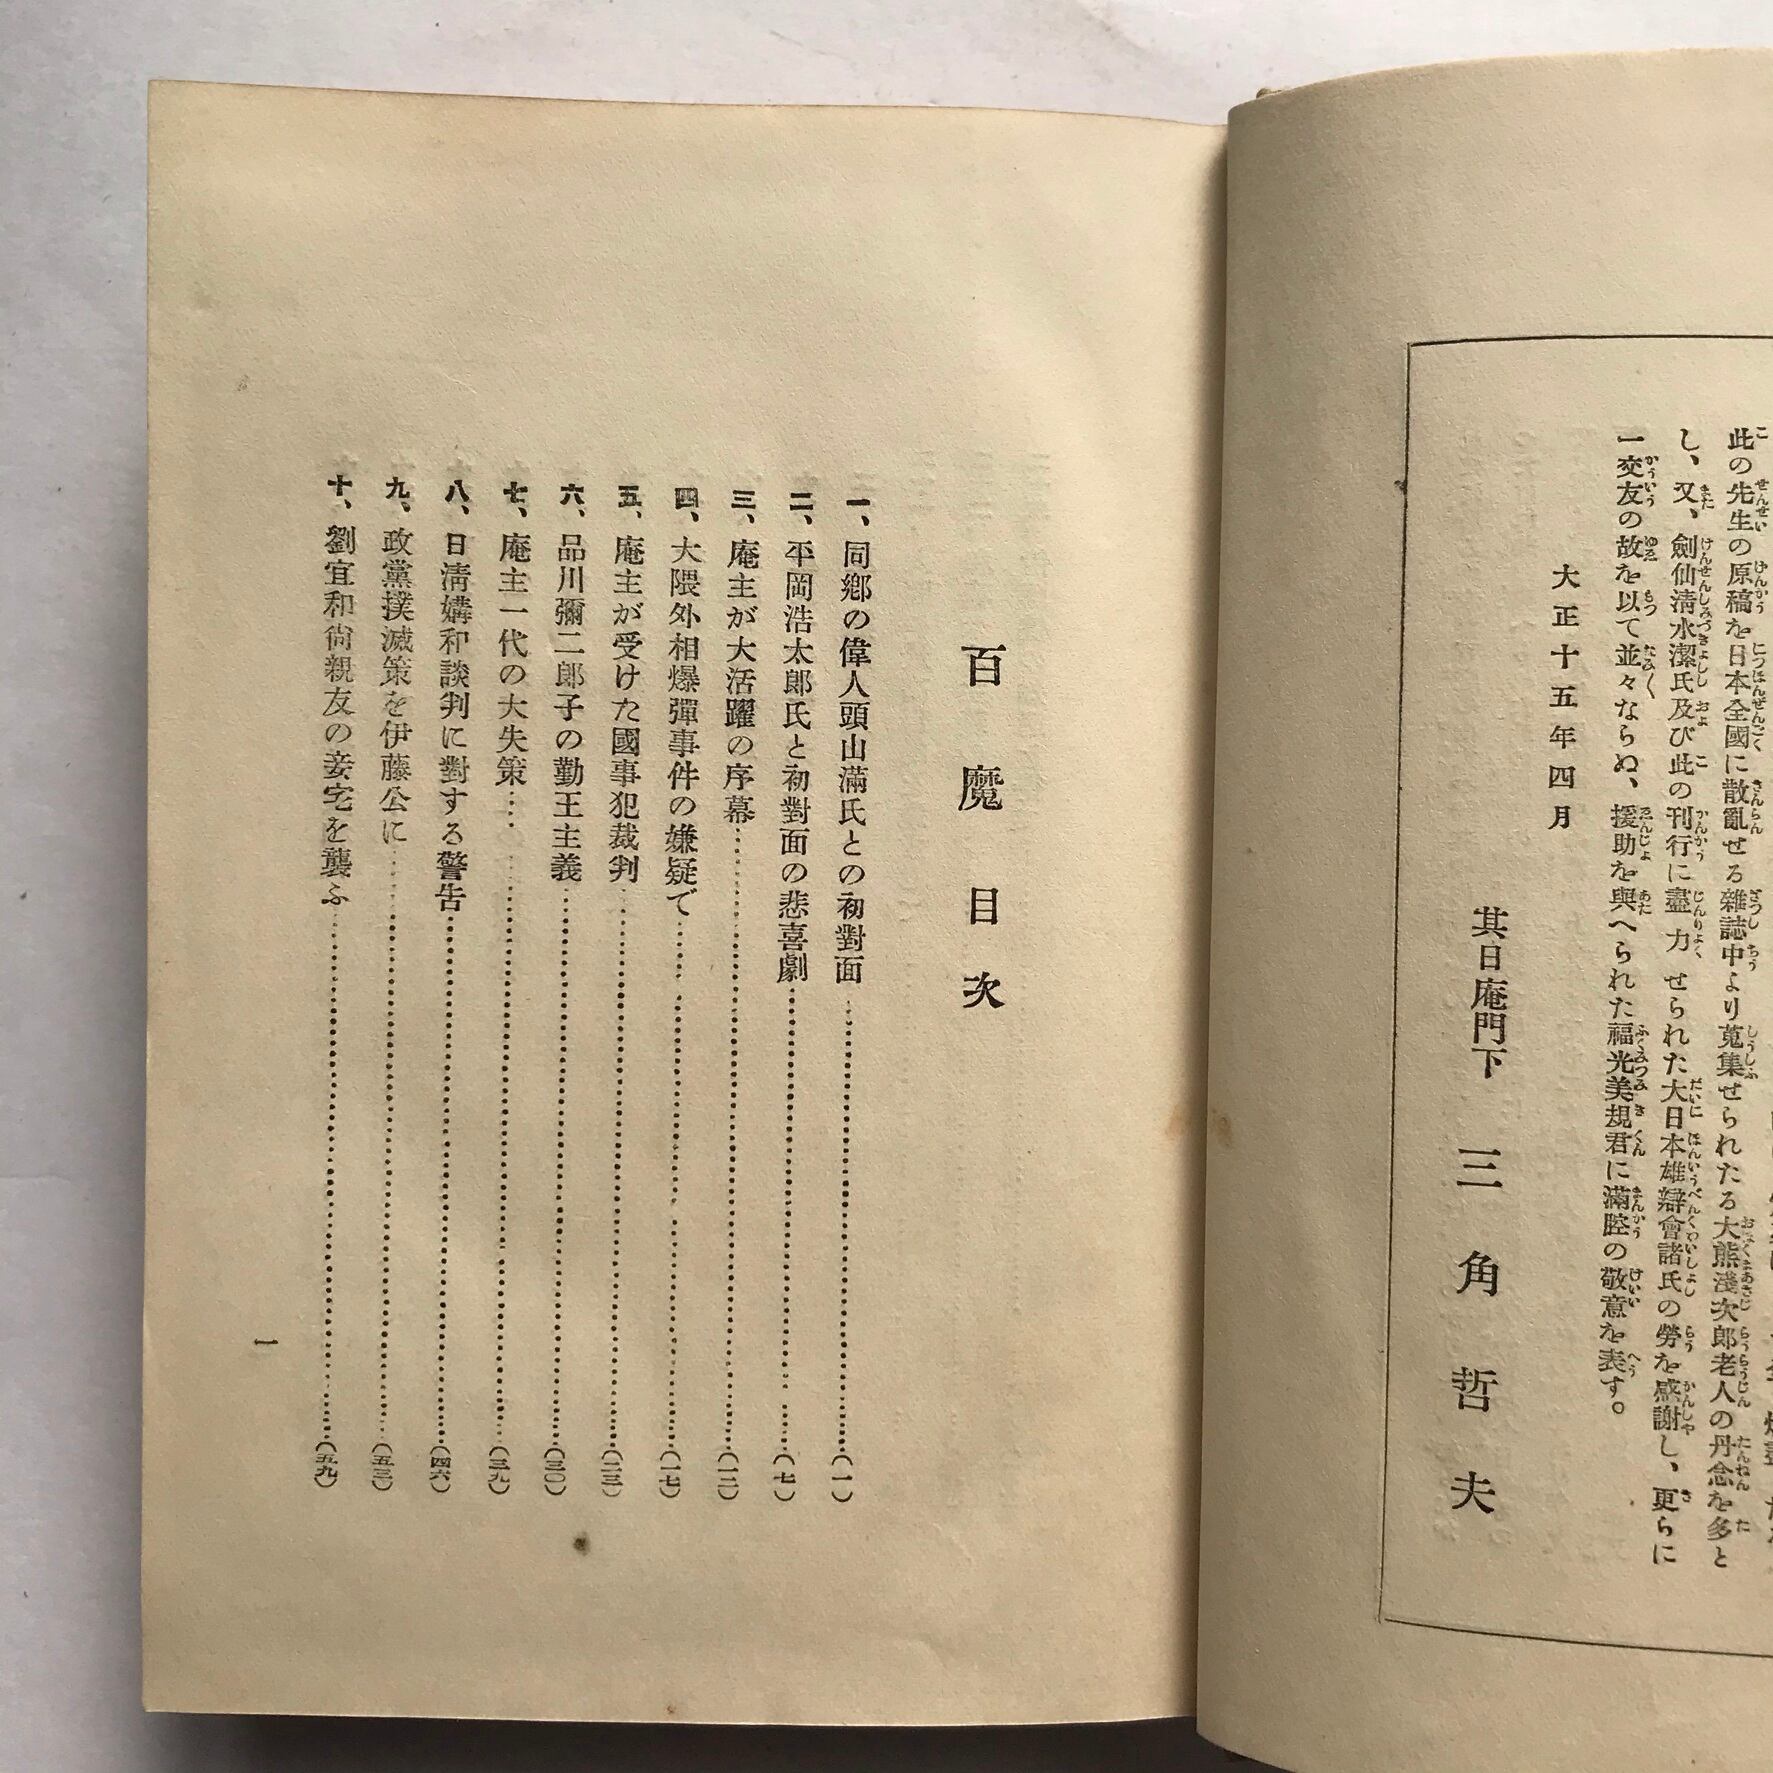 此の先生の原稿を日本全國に散亂せる雜誌中より蒐集せられたる大熊淺次郎老人の丹念を多と
し、又、劍仙淸水潔氏及び此の刊行に盡力せられた大日本雄辯會諸氏の勞を感謝し、更らに
一交友の故を以て並々ならぬ、援助を與へられた福光美規君に滿腔の敬意を表す。
大正十五年四月
其日庵門下 三角哲夫
百魔目次
一、同鄕の偉人頭山滿氏との初對面…………(一)
二、平岡浩太郞氏と初對面の悲喜劇…………(七)
三、庵主が大活躍の序幕…………(一二)
四、大隈外相爆彈事件の嫌疑で…………(一七)
五、庵主が受けた國事犯裁判…………(二三)
六、品川彌二郞子の勤王主義…………(三〇)
七、庵主一代の大失策…………(三九)
八、日淸媾和談判に對する警告…………(四六)
九、政黨撲滅策を伊藤公に…………(五三)
十、劉宜和尙親友の妾宅を襲ふ…………(五九)
一